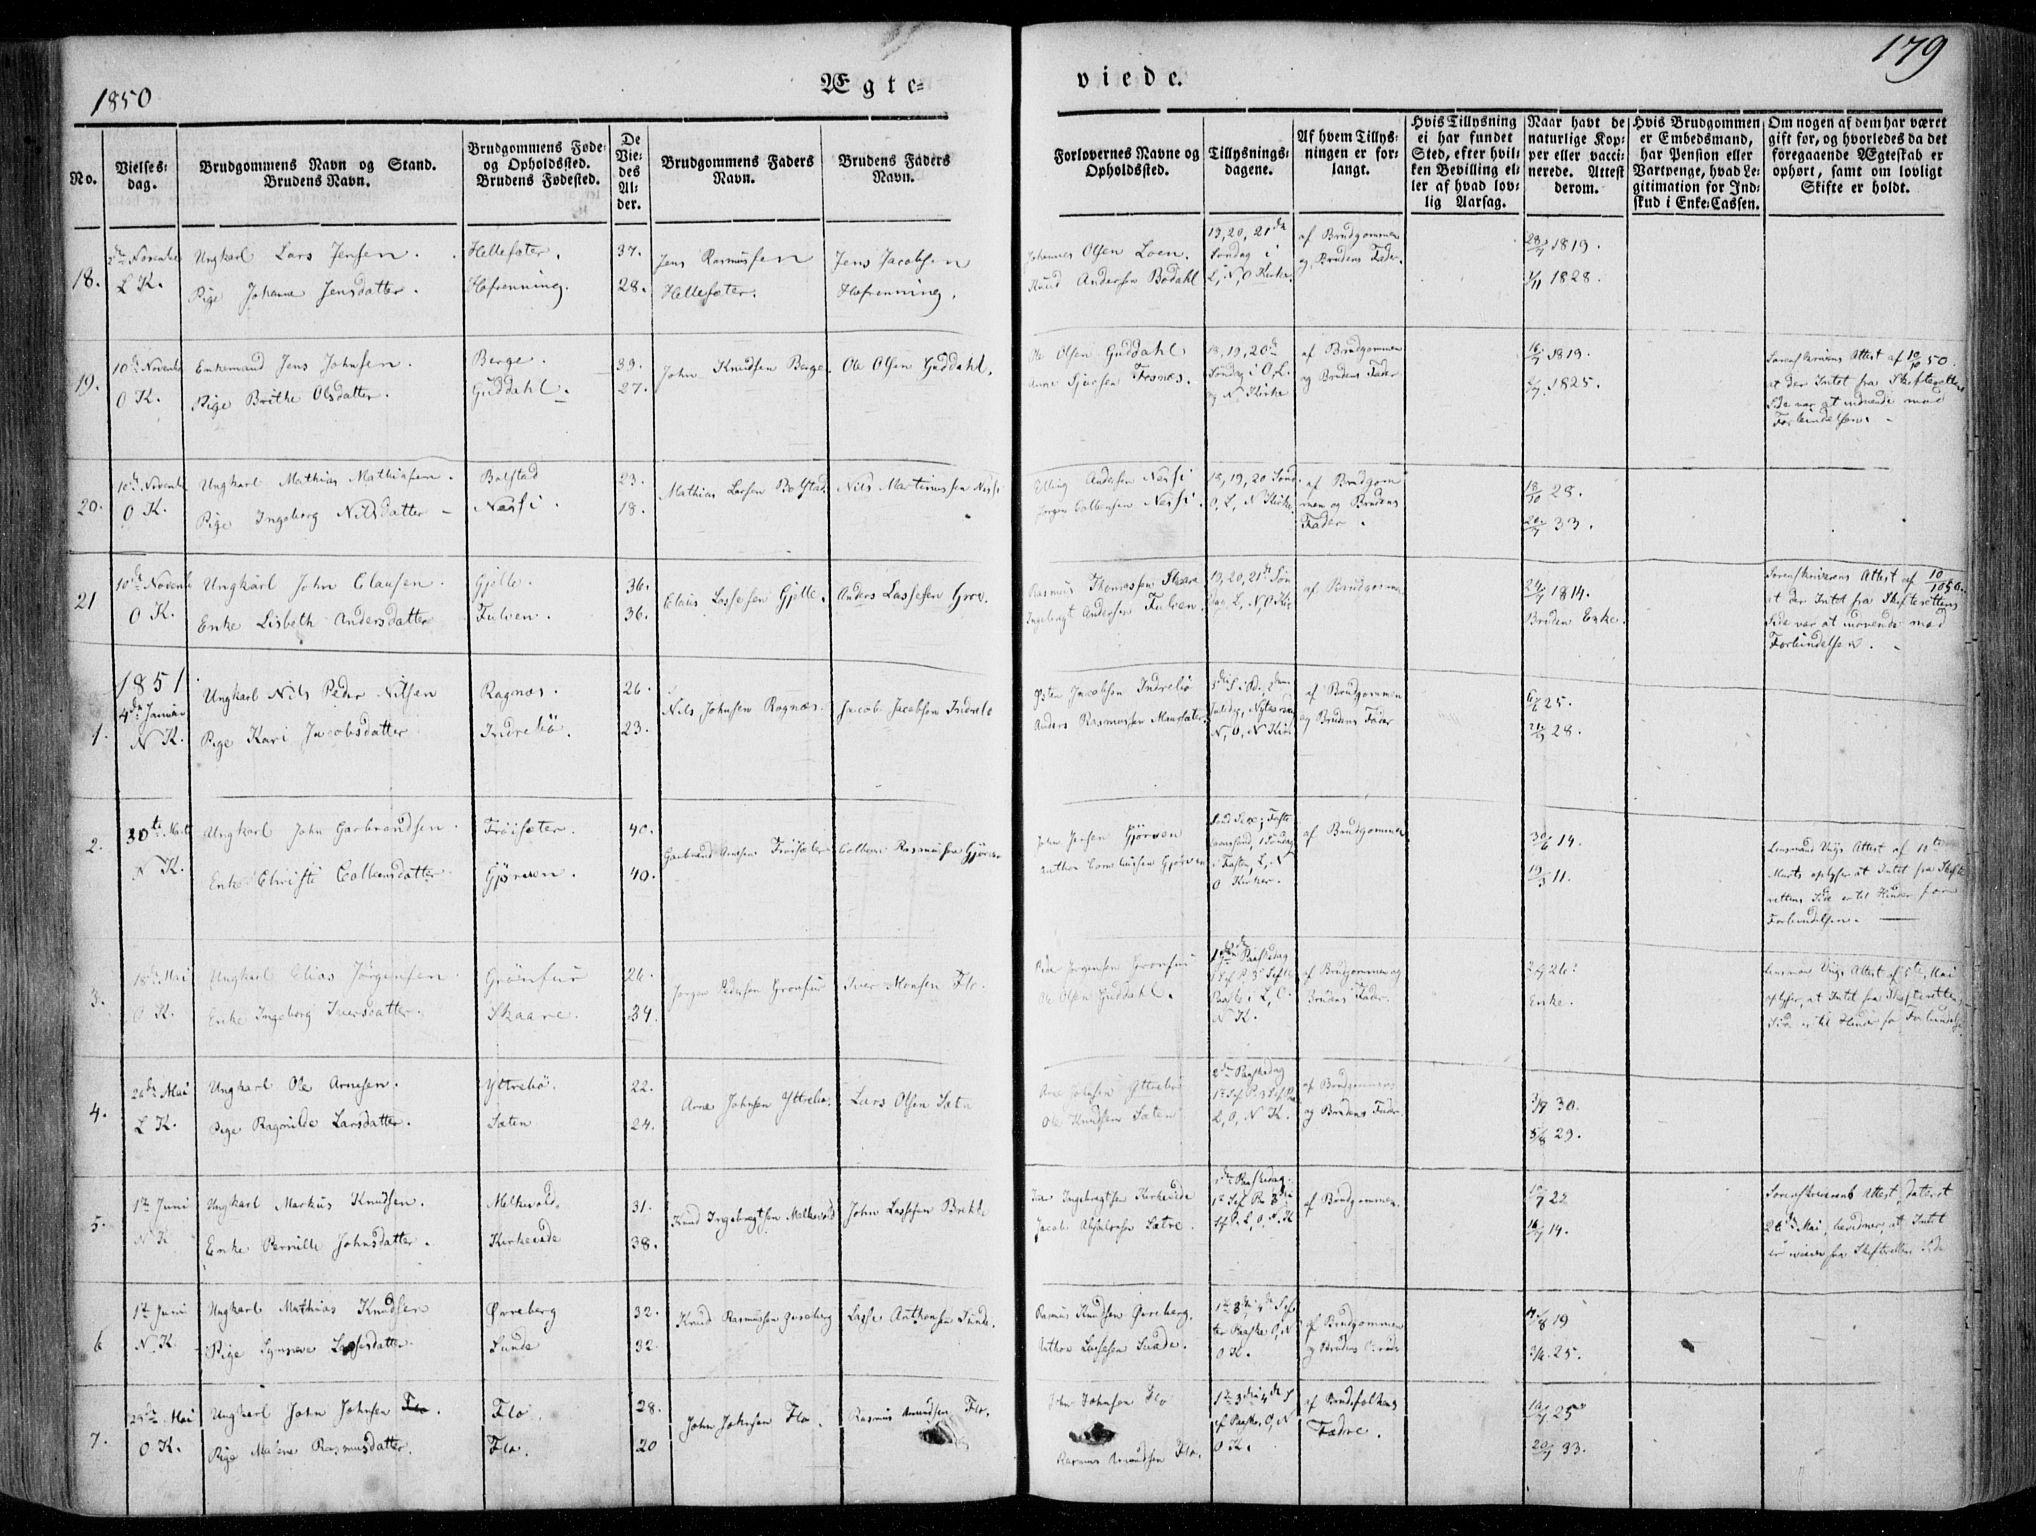 1850
Ægte=
viede.
179
No.
Vielses-
dag.
Brudgommens Navn og Stand.
Brudens Navn.
Brudgommens Føde-
og Opholdssted.
Brudens Fødested.
De
Vie-
des
Al-
der.
Brudgommens Faders
Navn.
Brudens Faders
Navn.
Forlovernes Navne og
Opholdssted.
Tillysnings-
dagene.
Af hvem Tillys-
ningen er for-
langt.
Hvis Tillysning
ei har fundet
Sted, efter hvil-
ken Bevilling el-
ler af hvad lov-
lig Aarsag.
Naar havt de
naturlige Kop-
per eller vacci-
nerede. Attest
derom.
Hvis Brudgommen
er Embedsmand,
har Pension eller
Vartpenge, hvad Le-
gitimation for Ind-
skud i Enke-Cassen.
Om nogen af dem har været
gift før, og hvorledes da det
foregaaende Ægteskab er
ophørt, samt om lovligt
Skifte er holdt.
18.
L K.
Ungkarl Lars Jensen.
Pige Johanne Jensdatter.
Hellesæter.
Hefrenning.
37.
28.
Jens Rasmussen
Hellesæter.
Jens Jacobsen
Hefrenning.
Johannes Olsen Loen.
Knud Andersen Bødahl
19, 20, 21de
Søndag i
L, N, O Kirke.
af Brudgommen
og Brudens Fader.
28/7 1819.
3/11 1828.
19.
O K.
Enkemand Jens Johnsen.
Pige Brithe Olsdatter.
Berge.
Guddahl.
39.
27.
John Knudsen Berge.
Ole Olsen Guddahl.
Ole Olsen Guddahl
18, 19, 20de
Søndag i O, L.
og N Kirke
af Brudgommen
og Brudens Fader
16/7 1819.
2/7 1825.
Sorenskriverens Attest af 10/10 50.
at der Intet fra Skifterettens
Side var at indvende mod
Forbindelsen.
20.
O K.
Ungkarl Mathias Mathiasen.
Pige Ingeborg Nilsdatter
Bolstad
Nessi.
23.
18.
Mathias Larsen Bolstad
Nils Martinussen Nessi
Elling Andersen Nessi
18, 19, 20 Sønd
O, L, N Kirke.
af Brudgom
men og Brudens
Fader.
18/10 28.
20/7 33.
21
O K.
Ungkarl John Clausen.
Enke Lisbeth Andersdatter
Gjølle.
Fulven.
36.
36.
Claus Lassesen Gjølle.
Anders Lassesen Grov.
Rasmus Thomassen Skaare
Ingebrigt Andersen Fulven.
19, 20, 21de Søn
dag L, N, O Kir
af Brudgomme
24/7 1814.
Bruden Enke.
Sorenskriverens Attest af 10/10 50.
at der Intet fra Skifterettens
Side var at indvende mod
Forbindelsen.
1851
1.
4de Januar
N K.
Ungkarl Nils Peder Nilsen
Pige Kari Jacobsdatter
Ragnæs.
Indrebø.
26.
23.
Nils Johnsen Ragnæs.
Jacob Jacobsen Indrebø
Jacobsen Indrebø
Anders Rasmussen
N, O, N Kir.
af Brudgommen
og Brudens Fader
6/6 25.
28.
2.
30te Marts
N K.
Ungkarl John Garbrandsen.
Enke Christi Colbensdatter
Trøisæter.
Gjørven.
40.
40.
Garbrand Arnesen Trøisæter
Colben Rasmussen Gjørven
John Jensen Gjørven
Anthon Cornelliussen Gjørven
i Fasten, L, N
O Kirker.
af Brudgommen
30/6 14.
19/3 11.
Lensmand Vigs Attest af 11te
Marts oplyser at Intet fra Skifte
rettens Side er til Hinder for
Forbindelsen.
3.
18de Mai
O K.
Ungkarl Elias Jørgensen.
Enke Ingeborg Iversdatter.
Grønfur
Skaare.
26.
34.
Jørgen Pedersen Grønfur
Iver Monsen Flo.
Peder Jørgensen Grønfur
Ole Olsen Guddahl.
N K.
af Brudgommen og
Brudens Fader.
Enke.
Lensmand Vigs Attest af 5te Mai
oplyser, at Intet fra Skifterettens
Side er til Hinder for Forbindelsen
4.
26de Mai
L K.
Ungkarl Ole Arnesen.
Pige Ragnilde Larsdatter.
Yttrebø.
Sæten
22.
24.
Arne Johnsen Yttrebø.
Lars Olsen Sæten
Arne Johnsen Yttrebø
Ole Knudsen Sæten
2den Paaskedag
L, O, N K.
af Brudgommens
og Brudens Fader.
3/9 30.
5/8 29.
5.
1te Juni
N K
Ungkarl Markus Knudsen.
Enke Pernille Johnsdatter.
Melkevold.
Kirkeeide
31.
38.
Knud Ingebrigtsen Melkevold
John Lassesen Brekke
Iver Ingebrigtsen Kirkeeide
Jacob Absalonsen Sætre.
af Brudgommen.
22
16/7 14.
Sorenskriverens Attest, dateret
26de Mai, bevidner, at Intet
er i veien fra Skifterettens Side
6
1te Juni
N K
Ungkarl Mathias Knudsen
Pige Synneve Lassesdatter
Øvreberg
Sunde
32.
32.
Knud Rasmussen Øvreberg
Lasse Anthonsen Sunde.
Rasmus Knudsen Øvreberg.
Anthon Lassesen Sunde.
ter Paaske O, N
O K.
af Brudgommen
17/8 19
3/6 25.
7.
O K.
Ungkarl John Johnsen Flo.
Pige Malene Rasmusdatter.
Flo.
Flo.
28.
20
John Johnsen Flo.
Rasmus Amundsen Flo.
John Johnsen Flo
Rasmus Amundsen Flo.
O K.
af Brudefolkenes
Fædre.
25
20/7 33.